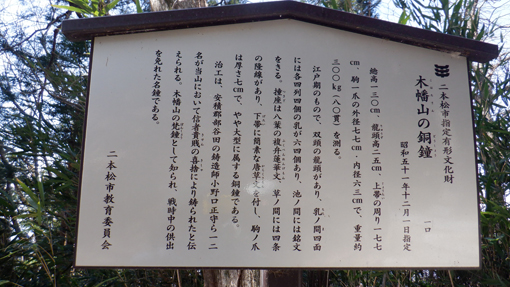 二本松市指定有形文化財
木幡山の銅鐘
一口
昭和五十一年十二月一日指定
総高一三〇cm、龍頭高二五cm、上帯の周り一七七
cm、駒ノ爪の外径七七cm・内径六三cmで、重量約
三〇〇kg(八〇貫)を測る。
江戸期のもので、双頭の龍頭があり、乳ノ間四面
には各四列四個の乳が六四個あり、池ノ間には銘文
をきる。撞座は八葉の複弁蓮華文、草ノ間には四条
の隆線があり、下帯に簡素な唐草文を付し、駒ノ爪
は厚さ七cmで、やや大型に属する銅鐘である。
冶工は、安積郡部谷田の鋳造師小野口正守ら一二
名が当山において信者衆賎の喜捨により鋳られたと伝
えられる。木幡山の梵鐘として知られ、戦時中の供出
を免れた名鐘である。
二本松市教育委員会